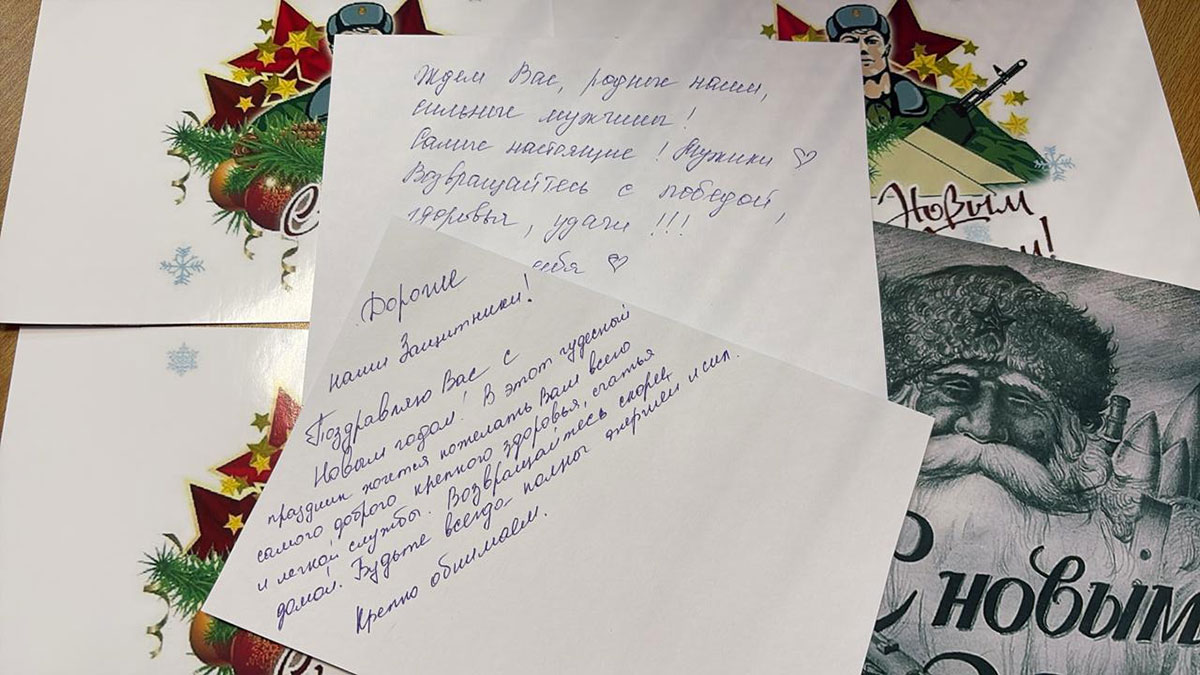 Ждем Вас, родные наши,
сильные мужчины!
Самые настоящие! Мужики ♡
Возвращайтесь с победой,
здоровья, удачи!!!
себя ♡
Дорогие
наши Защитники!
Поздравляю Вас с
Новым годом! В этот чудесный
праздник хочется пожелать Вам всего
самого доброго крепкого здоровья, счастья
и легкой службы. Возвращайтесь скорее
домой. Будьте всегда полны энергией и сил.
Крепко обнимаем.
Новым
С новым